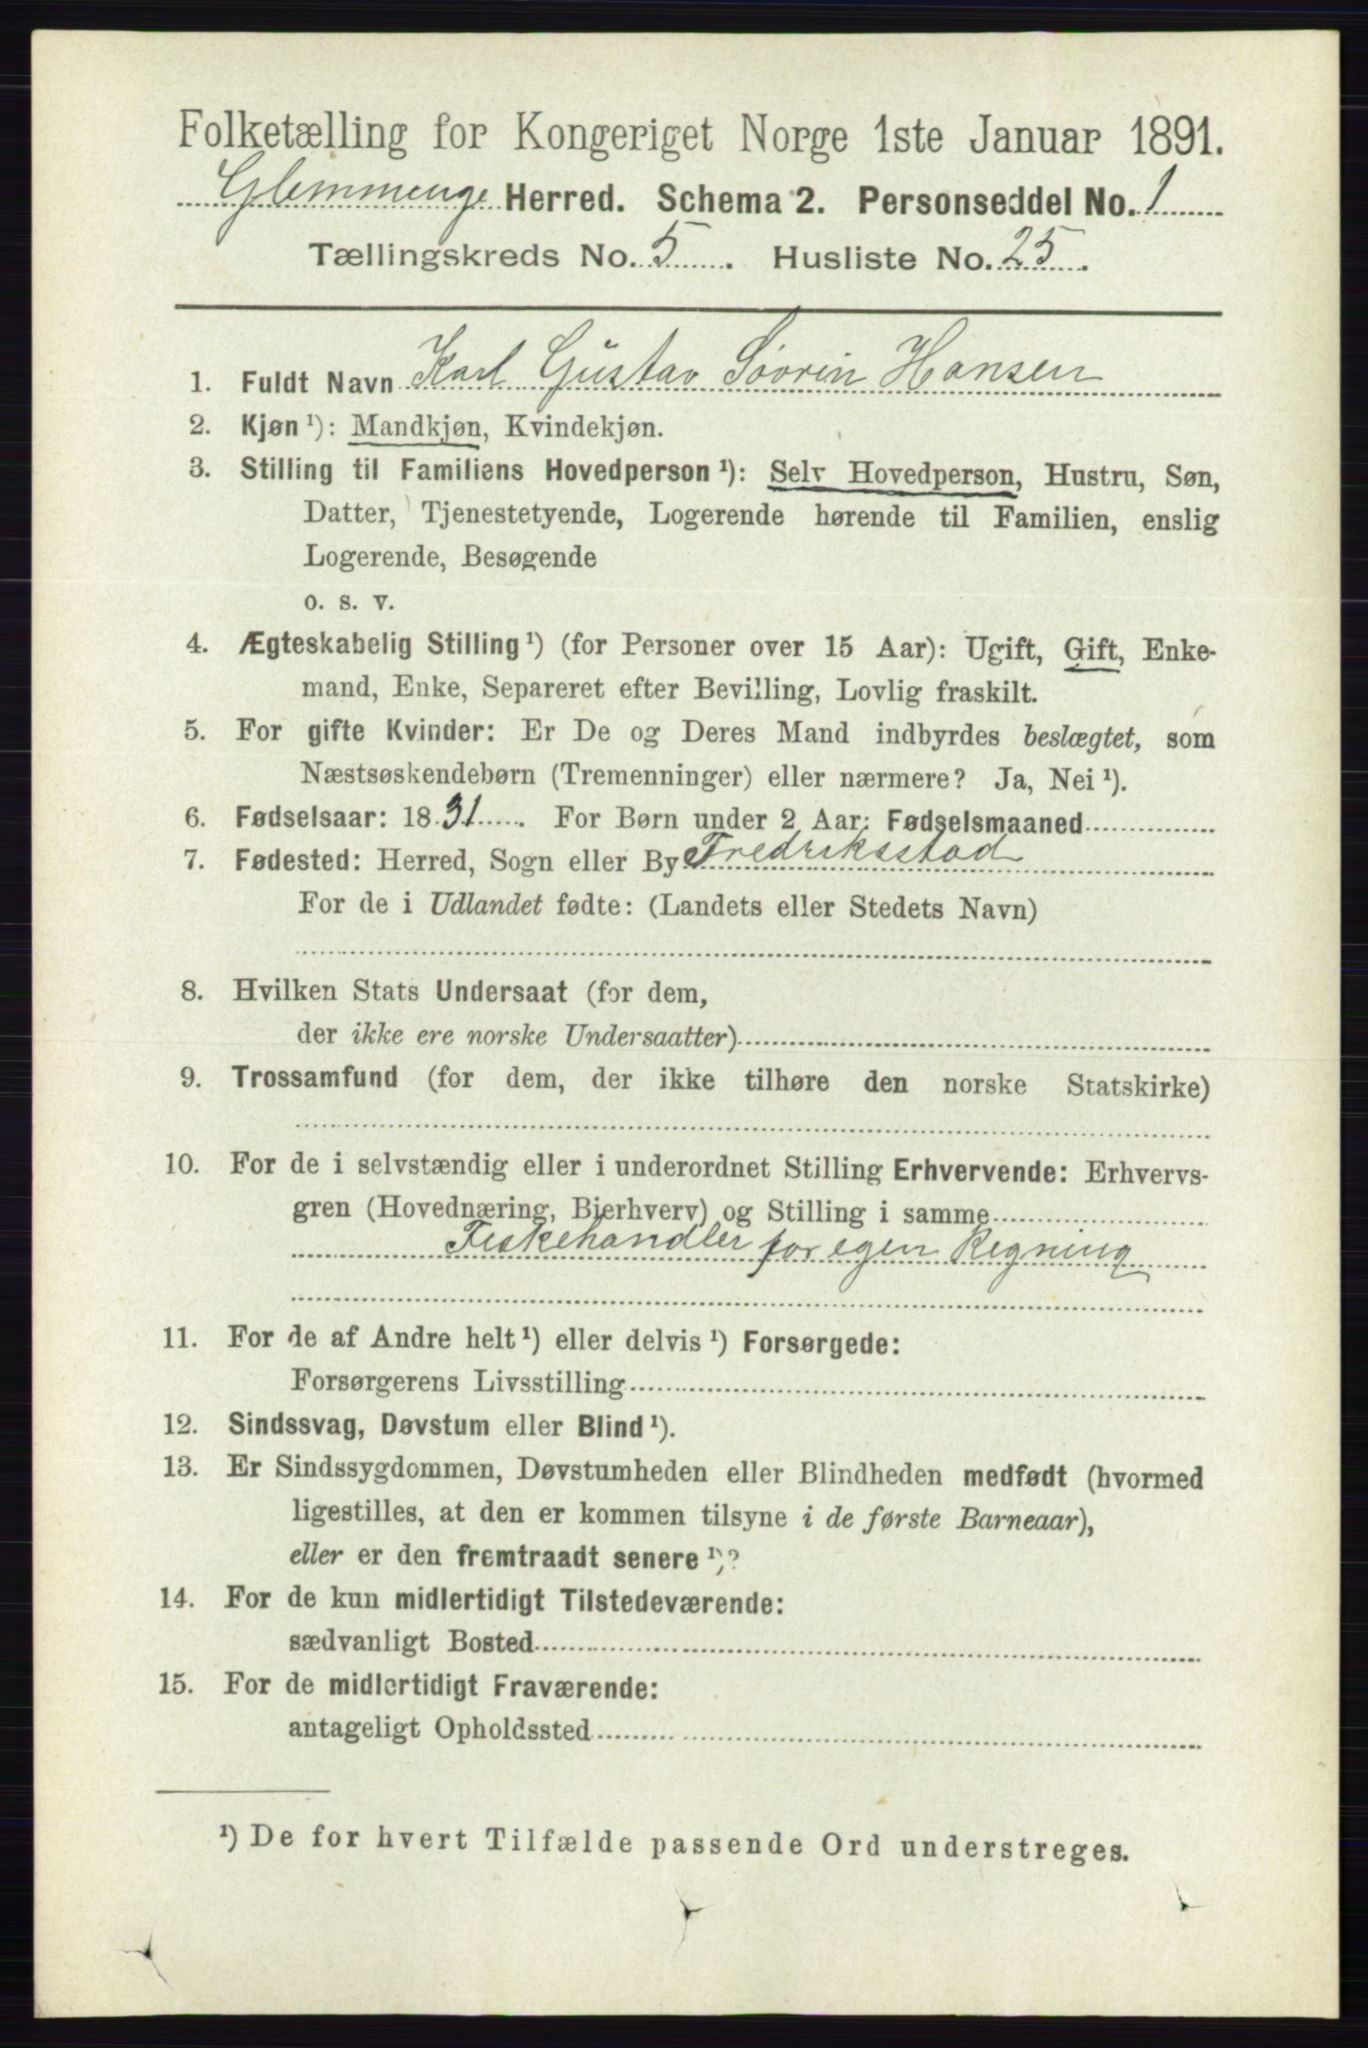 Folketælling for Kongeriget Norge 1ste Januar 1891.
Glemminge Herred. Schema 2. Personseddel No. 1
Tællingskreds No. 5. Husliste No. 25.
1. Fuldt Navn Karl Gustav Søvrin Hansen
2. Kjøn ¹): Mandkjøn, Kvindekjøn.
3. Stilling til Familiens Hovedperson ¹): Selv Hovedperson, Hustru, Søn,
Datter, Tjenestetyende, Logerende hørende til Familien, enslig
Logerende, Besøgende
o. s. v.
4. Ægteskabelig Stilling ¹) (for Personer over 15 Aar): Ugift, Gift, Enke-
mand, Enke, Separeret efter Bevilling, Lovlig fraskilt.
5. For gifte Kvinder: Er De og Deres Mand indbyrdes beslægtet, som
Næstsøskendebørn (Tremenninger) eller nærmere? Ja, Nei ¹).
6. Fødselsaar: 1831. For Børn under 2 Aar: Fødselsmaaned
7. Fødested: Herred, Sogn eller By Fredriksstad
For de i Udlandet fødte: (Landets eller Stedets Navn)
8. Hvilken Stats Undersaat (for dem,
der ikke ere norske Undersaatter)
9. Trossamfund (for dem, der ikke tilhøre den norske Statskirke)
10. For de i selvstændig eller i underordnet Stilling Erhvervende: Erhvervs-
gren (Hovednæring, Bierhverv) og Stilling i samme
Fiskehandler for egen Regning
11. For de af Andre helt ¹) eller delvis ¹) Forsørgede:
Forsørgerens Livsstilling
12. Sindssvag, Døvstum eller Blind ¹).
13. Er Sindssygdommen, Døvstumheden eller Blindheden medfødt (hvormed
ligestilles, at den er kommen tilsyne i de første Barneaar),
eller er den fremtraadt senere ¹)?
14. For de kun midlertidigt Tilstedeværende:
sædvanligt Bosted
15. For de midlertidigt Fraværende:
antageligt Opholdssted
¹) De for hvert Tilfælde passende Ord understreges.